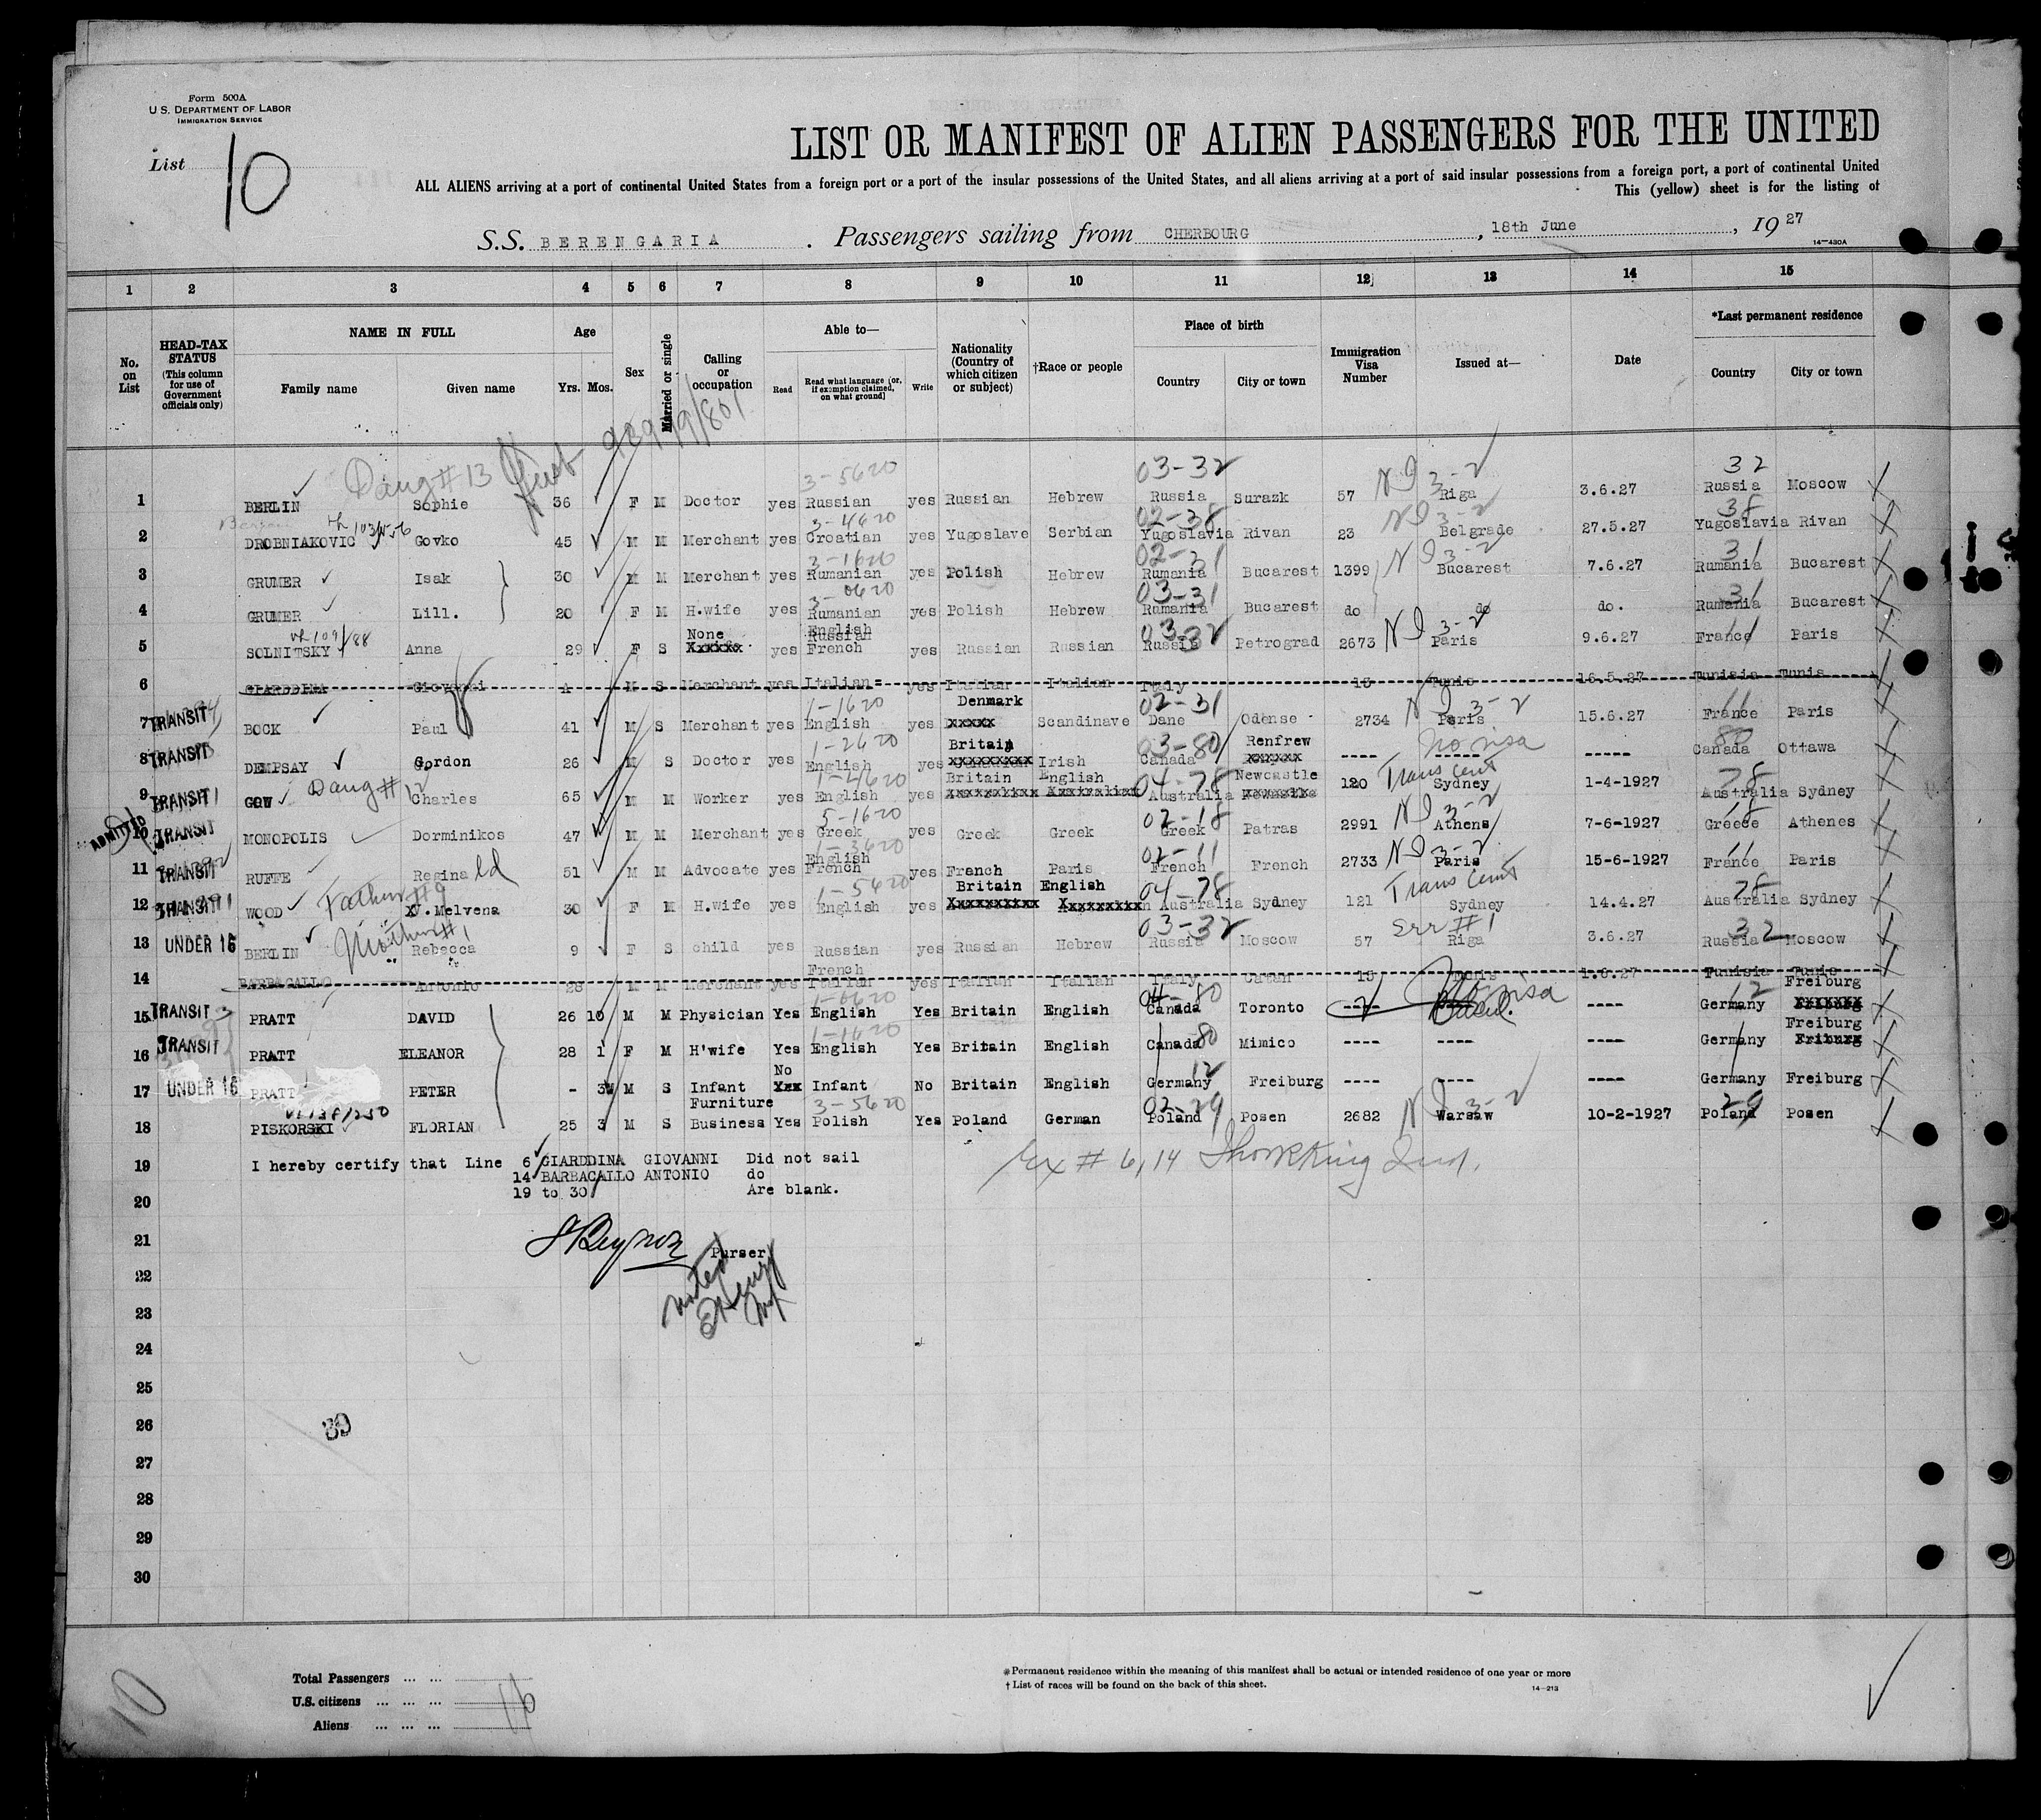 Form 500A
U. S. DEPARTMENT OF LABOR
IMMIGRATION SERVICE
List 10
LIST OR MANIFEST OF ALIEN PASSENGERS FOR THE UNITED
ALL ALIENS arriving at a port of continental United States from a foreign port or a port of the insular possessions of the United States, and all aliens arriving at a port of said insular possessions from a foreign port, a port of continental United
This (yellow) sheet is for the listing of
S.S. BERENGARIA . Passengers sailing from CHERBOURG , 18th June , 1927
14—430A
1 2 3 4 5 6 7 8 9 10 11 12 13 14 15
No. on List
HEAD-TAX STATUS (This column for use of Government officials only)
NAME IN FULL
Family name Given name
Age
Yrs. Mos.
Sex
Married or single
Calling or occupation
Able to—
Read Read what language (or, if exemption claimed, on what ground) Write
Nationality (Country of which citizen or subject)
†Race or people
Place of birth
Country City or town
Immigration Visa Number
Issued at—
Date
*Last permanent residence
Country City or town
Daug # 13 3-5620 03-32 NI 3-2 32
1 BERLIN Sophie 36 F M Doctor yes Russian yes Russian Hebrew Russia Surazk 57 Riga 3.6.27 Russia Moscow
3-4620 02-38 NI 3-2 38
2 DROBNIAKOVIC Govko 45 M M Merchant yes Croatian yes Yugoslave Serbian Yugoslavia Rivan 23 Belgrade 27.5.27 Yugoslavia Rivan
3-1620 02-31 NI 3-2 31
3 GRUMER Isak 30 M M Merchant yes Rumanian yes Polish Hebrew Rumania Bucarest 1399 Bucarest 7.6.27 Rumania Bucarest
3-0620 03-31 31
4 GRUMER Lill. 20 F M H.wife yes Rumanian yes Polish Hebrew Rumania Bucarest do do do. Rumania Bucarest
None English Russian 03-32 NI 3-2 11
5 SOLNITSKY Anna 29 F S Xxxxxx yes French yes Russian Russian Russia Petrograd 2673 Paris 9.6.27 France Paris
6 GIARDDINA Giovanni M S Merchant yes Italian yes Italian Italian Italy Tunis 16.5.27 Tunisia Tunis
1-1620 Denmark 02-31 NI 3-2 11
7 TRANSIT BOCK Paul 41 M S Merchant yes English yes xxxxx Scandinave Dane Odense 2734 Paris 15.6.27 France Paris
1-2620 Britain 03-80 Renfrew no visa 80
8 TRANSIT DEMPSAY Gordon 26 M S Doctor yes English yes Irish Canada ---- ---- ----- Canada Ottawa
Daug # 12 1-4620 Britain English 04-78 Newcastle Trans Cent 78
9 TRANSIT GOW Charles 65 M M Worker yes English yes Australia 120 Sydney 1-4-1927 Australia Sydney
ADMITTED 5-1620 02-18 NI 3-2 18
10 TRANSIT MONOPOLIS Dorminikos 47 M M Merchant yes Greek yes Greek Greek Greek Patras 2991 Athens 7-6-1927 Greece Athenes
1-3620 English 02-11 NI 3-2 11
11 TRANSIT RUFFE Reginald 51 M M Advocate yes French yes French Paris French French 2733 Paris 15-6-1927 France Paris
Father # 9 1-5620 Britain English 04-78 Trans Cent 78
12 TRANSIT WOOD X. Melvena 30 F M H.wife yes English yes Australia Sydney 121 Sydney 14.4.27 Australia Sydney
Mother # 1 03-32 See # 1 32
13 UNDER 16 BERLIN Rebecca 9 F S child yes Russian yes Russian Hebrew Russia Moscow 57 Riga 3.6.27 Russia Moscow
French
14 BARBAGALLO Antonio 28 M M Merchant yes Italian yes Italian Italian Italy Catan 15 Tunis 1.6.27 Tunisia Tunis
1-6620 04-80 12 Freiburg
15 TRANSIT PRATT DAVID 26 10 M M Physician Yes English Yes Britain English Canada Toronto ---- Germany XXXXXXX
1-1620 80 Freiburg
16 TRANSIT PRATT ELEANOR 28 1 F M H'wife Yes English Yes Britain English Canada Mimico ---- ---- ---- Germany
No 12
17 UNDER 16 PRATT PETER - 3 M S Infant Yxx Infant No Britain English Germany Freiburg ---- ---- ---- Germany Freiburg
Furniture 3-5620 02-29 NI 3-2 29
18 PISKORSKI FLORIAN 25 3 M S Business Yes Polish Yes Poland German Poland Posen 2682 Warsaw 10-2-1927 Poland Posen
19 I hereby certify that Line 6 GIARDDINA GIOVANNI Did not sail
14 BARBACALLO ANTONIO do
19 to 30 Are blank.
Ex # 6, 14
20
21
Purser
22
noted
23
24
25
26
39
27
28
29
30
Total Passengers ... ...
U.S. citizens ... ... ...
Aliens ... ... ...
16
10
*Permanent residence within the meaning of this manifest shall be actual or intended residence of one year or more
† List of races will be found on the back of this sheet.
14—213